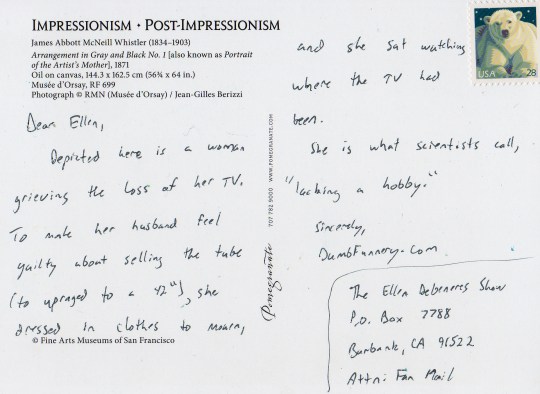 IMPRESSIONISM • POST-IMPRESSIONISM
James Abbott McNeill Whistler (1834–1903)
Arrangement in Gray and Black No. 1 [also known as Portrait
of the Artist's Mother], 1871
Oil on canvas, 144.3 x 162.5 cm (56¾ x 64 in.)
Musée d'Orsay, RF 699
Photograph © RMN (Musée d'Orsay) / Jean-Gilles Berizzi
Dear Ellen,
Depicted here is a woman
grieving the loss of her TV.
To make her husband feel
guilty about selling the tube
(to upgrade to a 42"), she
dressed in clothes to mourn,
© Fine Arts Museums of San Francisco
707 782 9000 WWW.POMEGRANATE.COM
Pomegranate
USA 28
and she sat watching
where the TV had
been.
She is what scientists call,
"lacking a hobby."
Sincerely,
DumbFunnery.com
The Ellen Degeneres Show
P.O. Box 7788
Burbank, CA 91522
Attn: Fan Mail